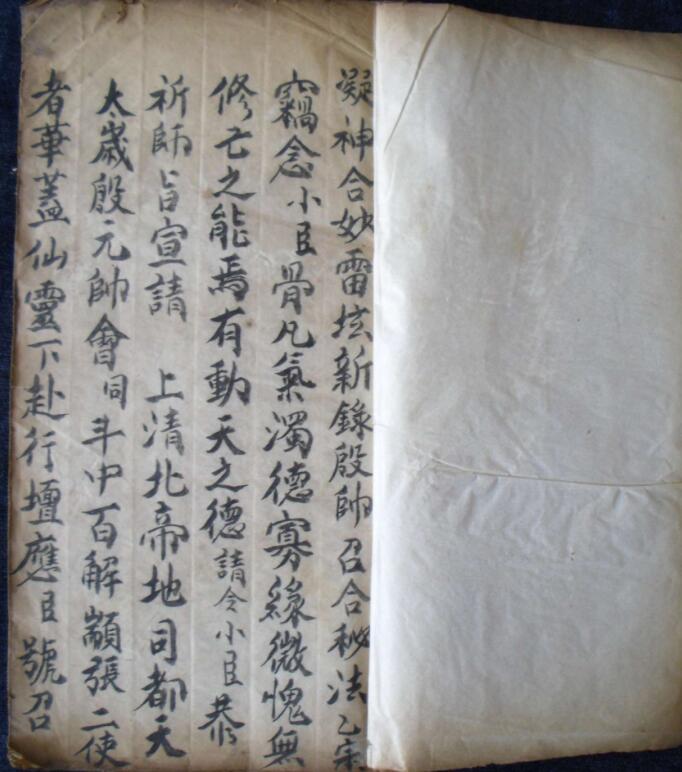 凝神合妙雷坛新錄殷帥召合秘法乙宗
竊念小臣骨凡氣濁德寡緣微愧無
修亡之能焉有動天之德請令小臣恭
祈師旨宣請　上清北帝地司都天
太歲殷元帥會同斗中百解顓張二使
者華蓋仙靈下赴行壇應臣號召